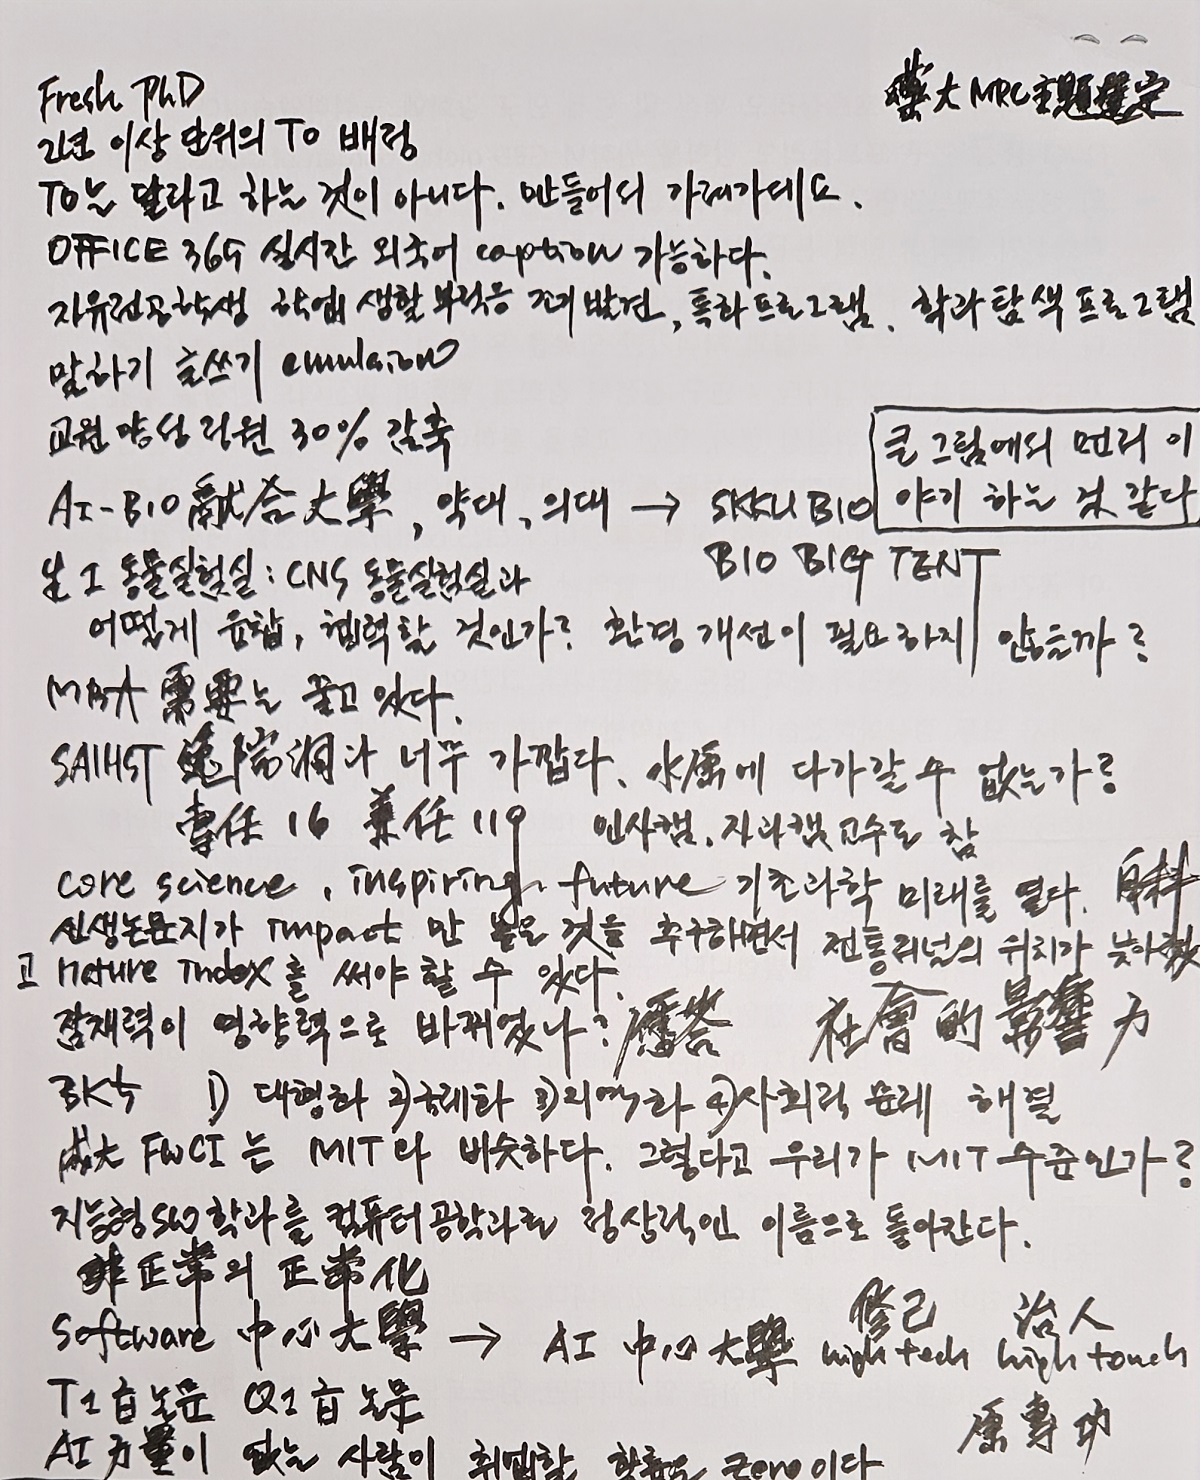 藥大 MRC 主題選定
Fresh PhD
2년 이상 단위의 TO 배정
TO는 달라고 하는 것이 아니다. 만들어서 가져가세요.
OFFICE 365 실시간 외국어 caption 가능하다.
자유전공학생 학업 생활 부적응 조기발견, 특화프로그램, 학과탐색프로그램
말하기 글쓰기 emulsion
교원양성정원 30% 감축
큰 그림에서 먼저 이
야기 하는 것 같다
AI-BIO 融合大學, 약대, 의대 → SKKU BIO
BIO BIG TENT
동물실험실: CNS 동물실험실과
어떻게 융합, 협력할 것인가? 환경개선이 필요하지 않을까?
MBA 需要는 끌고 있다.
SAIHST 逸院洞과 너무 가깝다. 水原에 다가갈 수 없는가?
專任 16 兼任 119 인사캠, 자과캠 교수도 참
core science, inspiring future 기초과학 미래를 열다. 自科
신생논문지가 impact 만 높은 것을 추구하면서 전통저널의 위치가 낮아
고 nature index를 써야 할 수 있다.
잠재력이 영향력으로 바뀌었나? 應答 社會的 影響力
BK는 1) 대형화 2) 국제화 3) 지역화 4) 사회적 문제 해결
成大 FWCI는 MIT와 비슷하다. 그렇다고 우리가 MIT 수준인가?
지능형SW학과를 컴퓨터공학과로 정상적인 이름으로 돌아간다.
非正常의 正常化
Software 中心大學 → AI 中心大學
修己 治人
high tech high touch
T1급논문 Q1급논문
AI力量이 없는 사람이 취업할 확률은 zero이다